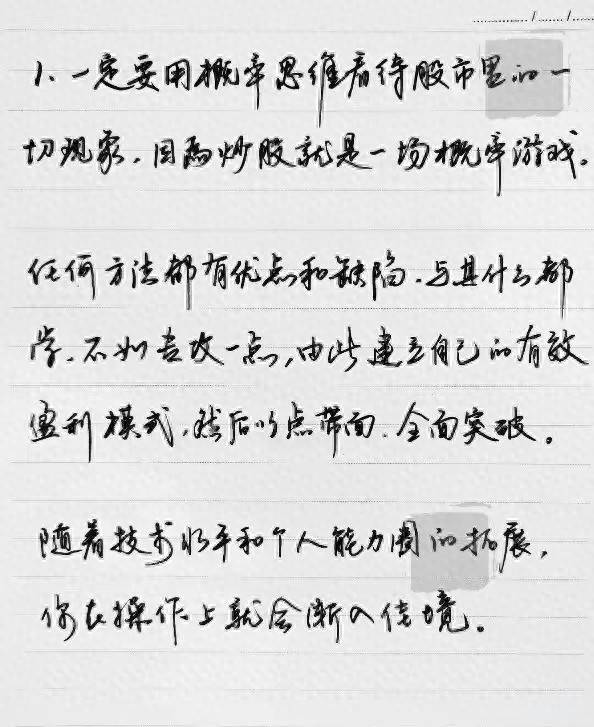 1、一定要用概率思维看待股市里的一
切现象，因为炒股就是一场概率游戏。
任何方法都有优点和缺陷，与其什么都
学，不如专攻一点，由此建立自己的有效
盈利模式，然后以点带面，全面突破。
随着技术水平和个人能力圈的拓展，
你在操作上就会渐入佳境。